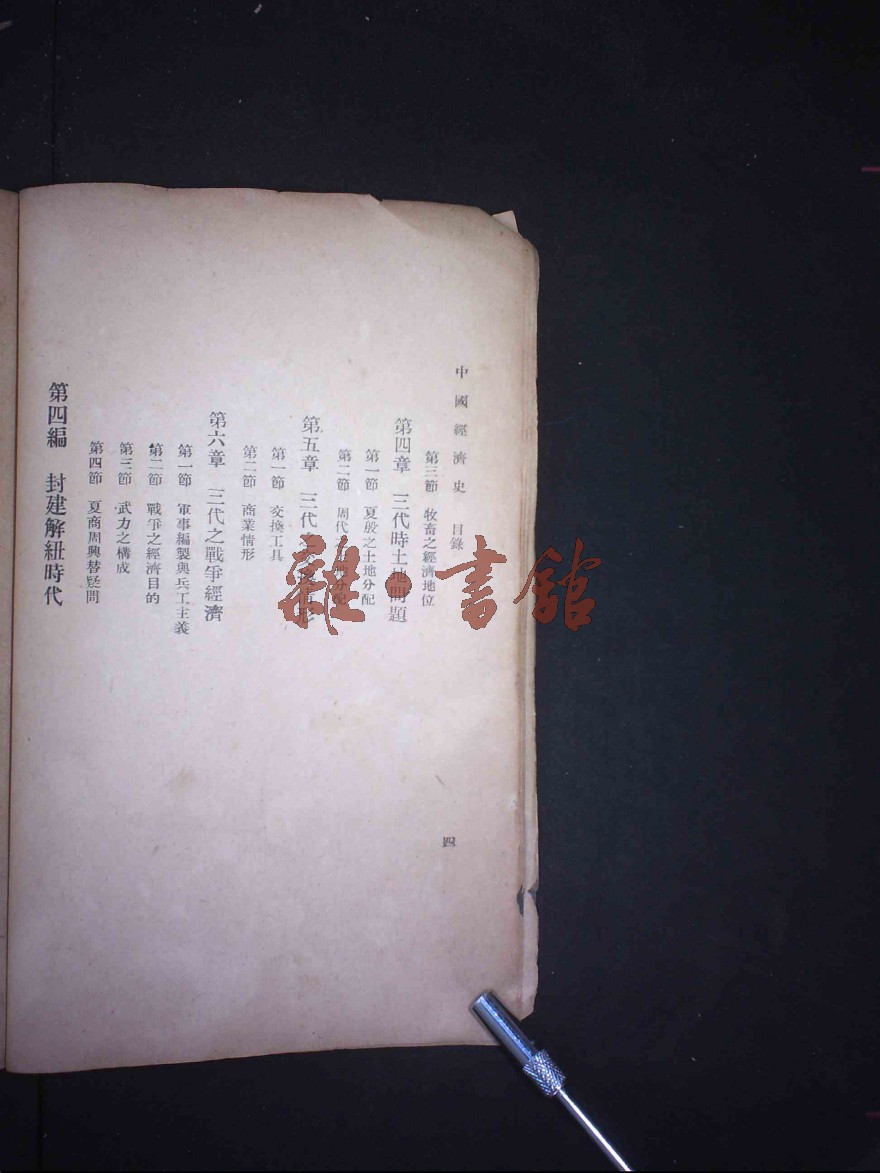 中國經濟史 目錄
第三節 牧畜之經濟地位
第四章 三代時土地問題
第一節 夏殷之土地分配
第二節 周代 地分配
第五章 三代 形
第一節 交換工具
第二節 商業情形
第六章 三代之戰爭經濟
第一節 軍事編製與兵工主義
第二節 戰爭之經濟目的
第三節 武力之構成
第四節 夏商周興替疑問
第四編 封建解紐時代
四
雜·書館